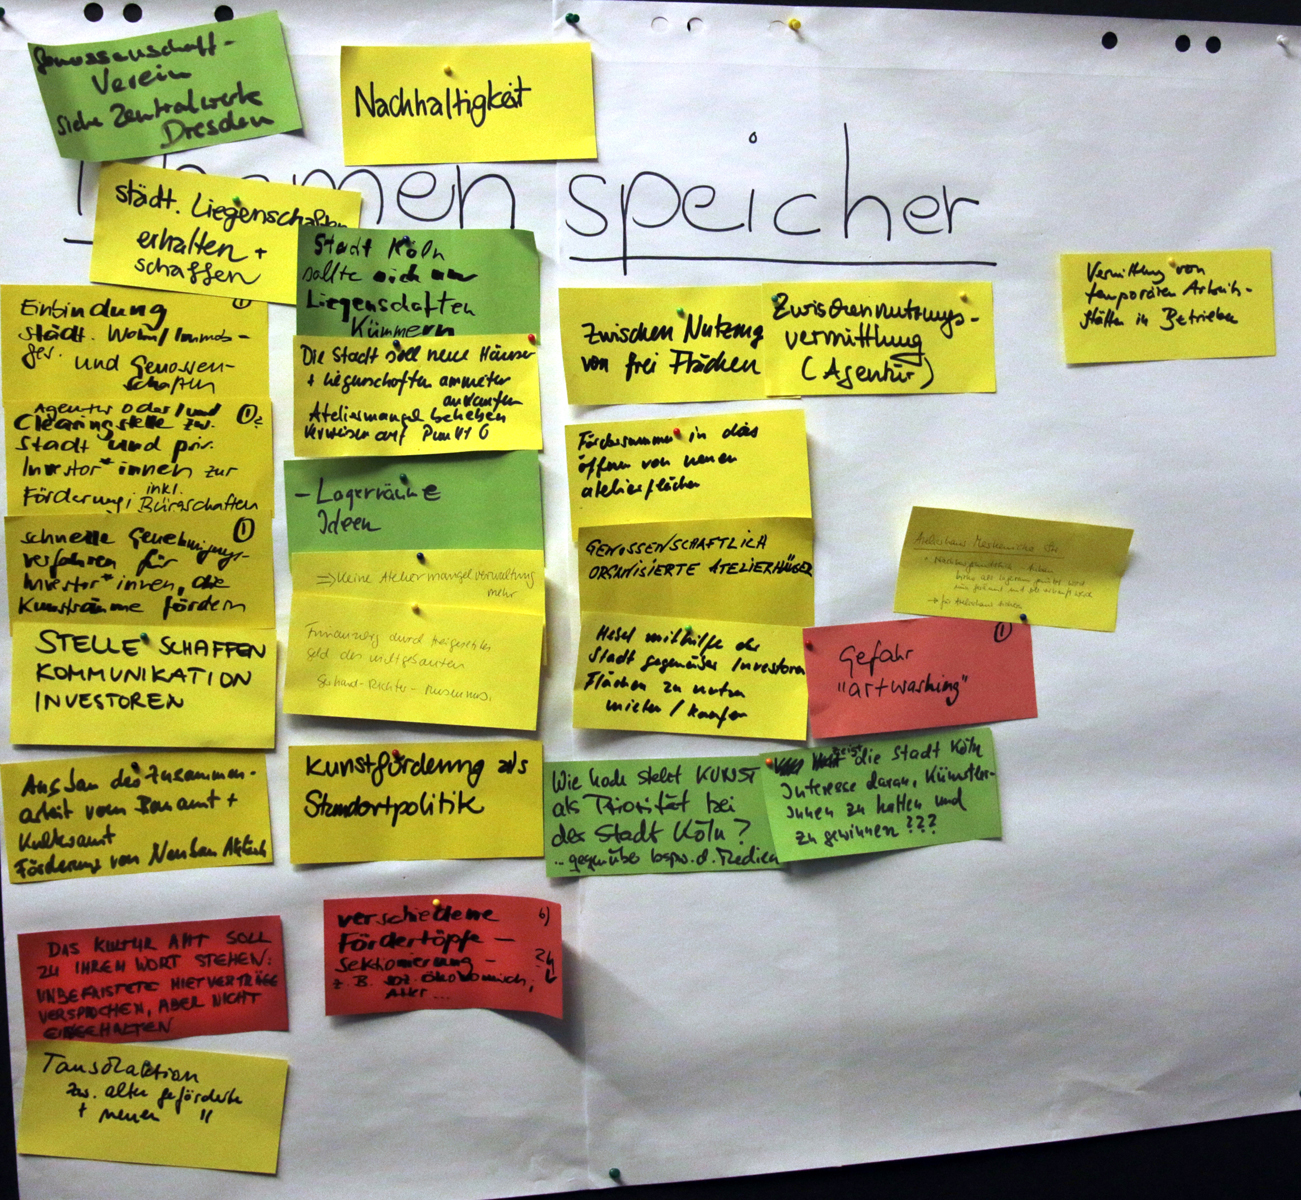 Genossenschaft-
Verein
Siehe Zentralwerk
Dresden
Nachhaltigkeit
Themen speicher
städt. Liegenschaften
erhalten +
schaffen
Stadt Köln
sollte sich um
Liegenschaften
Kümmern
Einbindung ①
städt. Wohn/Immob-
ges. und Genossen-
schaften
Die Stadt soll neue Häuser
+ Liegenschaften anmieten
ankaufen
Ateliermangel beheben
Verweisen auf Punkt 6
Zwischen Nutzung
von frei Flächen
Zwischennutzungs-
vermittlung
(Agentur)
Vermittlung von
temporären Arbeits-
stätten in Betrieben
Agentur oder/und ①
Clearingstelle zw.
Stadt und priv.
Investor*innen zur
Förderung; inkl.
Bürgschaften
- Lagerräume
Ideen
Fördersummen in das
öffnen von neuen
atelierflächen
schnelle Genehmigungs- ①
verfahren für
Investor*innen, die
Kunsträume fördern
⇒ Keine Ateliermangelverwaltung
mehr
GENOSSENSCHAFTLICH
ORGANISIERTE ATELIERHÄUSER
STELLE SCHAFFEN
KOMMUNIKATION
INVESTOREN
Finanzierung durch freigesetztes
Geld des
Gerhard-Richter-Museums.
mithilfe der
Stadt gegenüber Investoren
Flächen zu nutzen
mieten / kaufen
Gefahr ①
"artwashing"
Ausbau der Zusammen-
arbeit vom Bauamt +
Kulturamt
Förderung von Neubau
Kunstförderung als
Standortpolitik
Wie hoch steht KUNST
als Priorität bei
der Stadt Köln?
.. gegenüber bspw. d. Medien
zeigt die Stadt Köln
Interesse daran, Künstler-
innen zu halten und
zu gewinnen ???
DAS KULTUR AMT SOLL
ZU IHREM WORT STEHEN:
UNBEFRISTETE MIETVERTRÄGE
VERSPROCHEN, ABER NICHT
EINGEHALTEN
verschiedene 6)
Fördertöpfe -
Sektionierung -
z.B. soz. ökonomisch,
Alter ...
Tauschaktion
zw. alten geförderte
+ neuen "